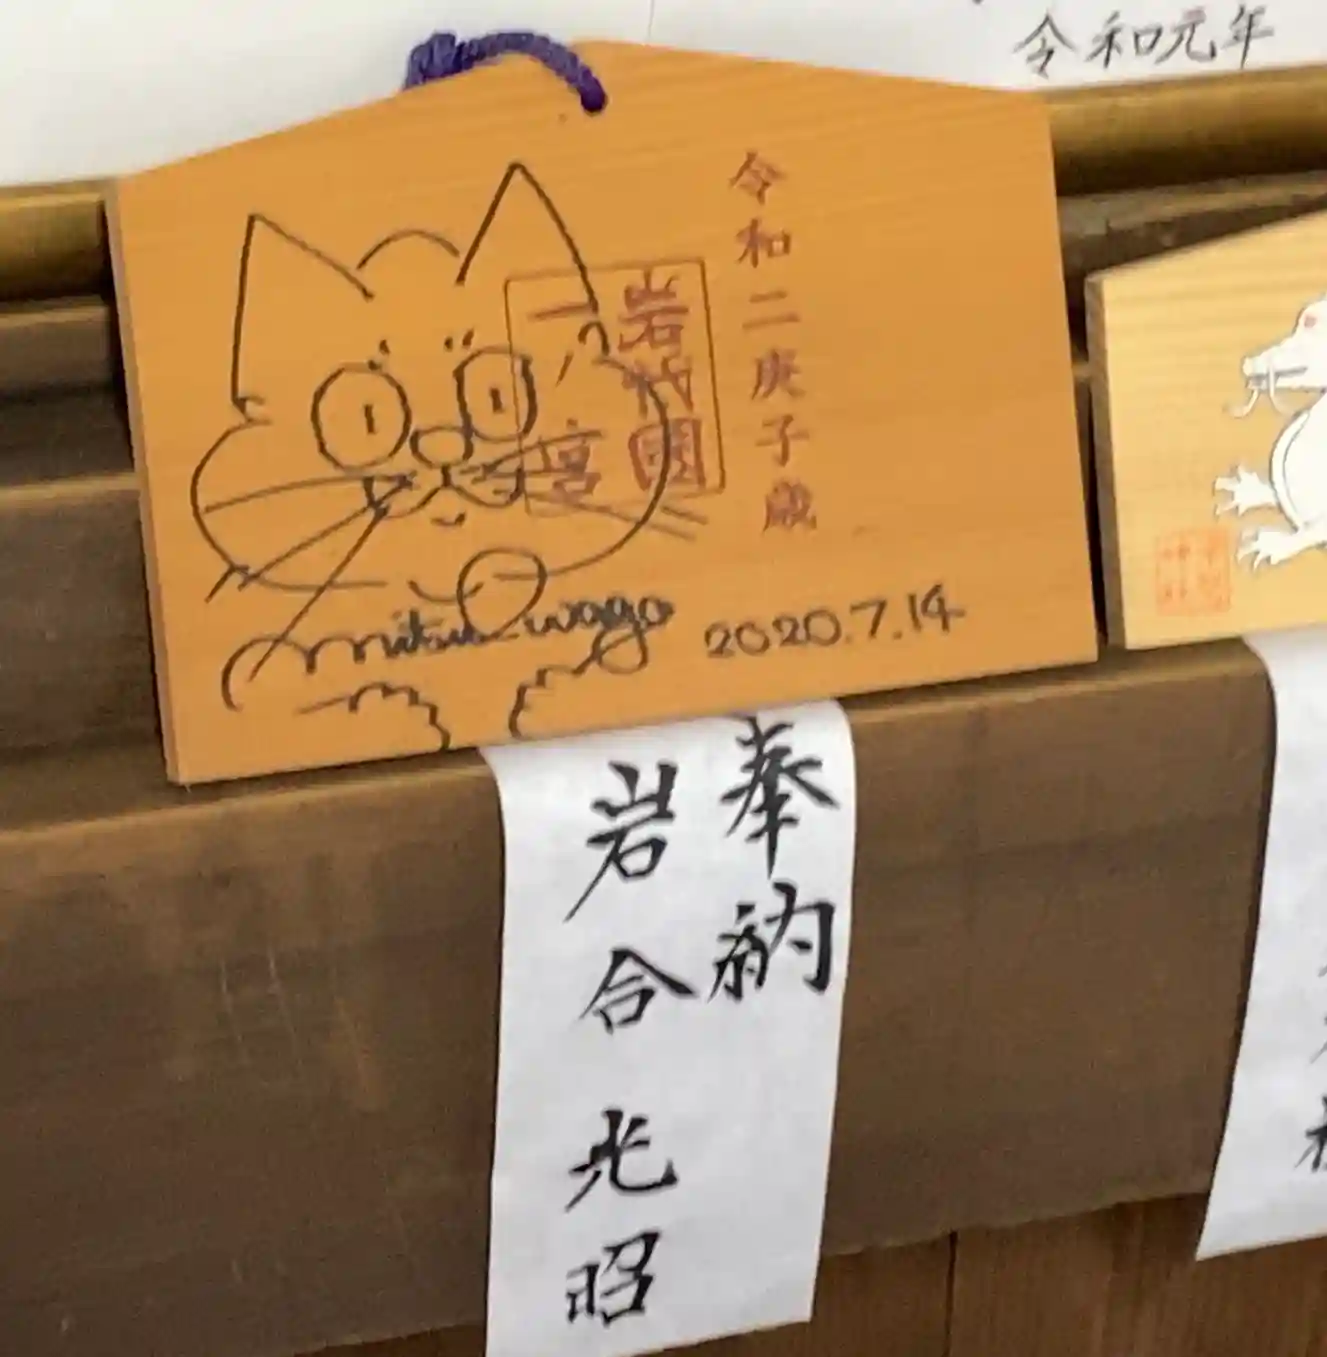 令和元年
令和二庚子歳
岩代國
一ノ宮
mitsu iwago
2020.7.14
奉納
岩合光昭